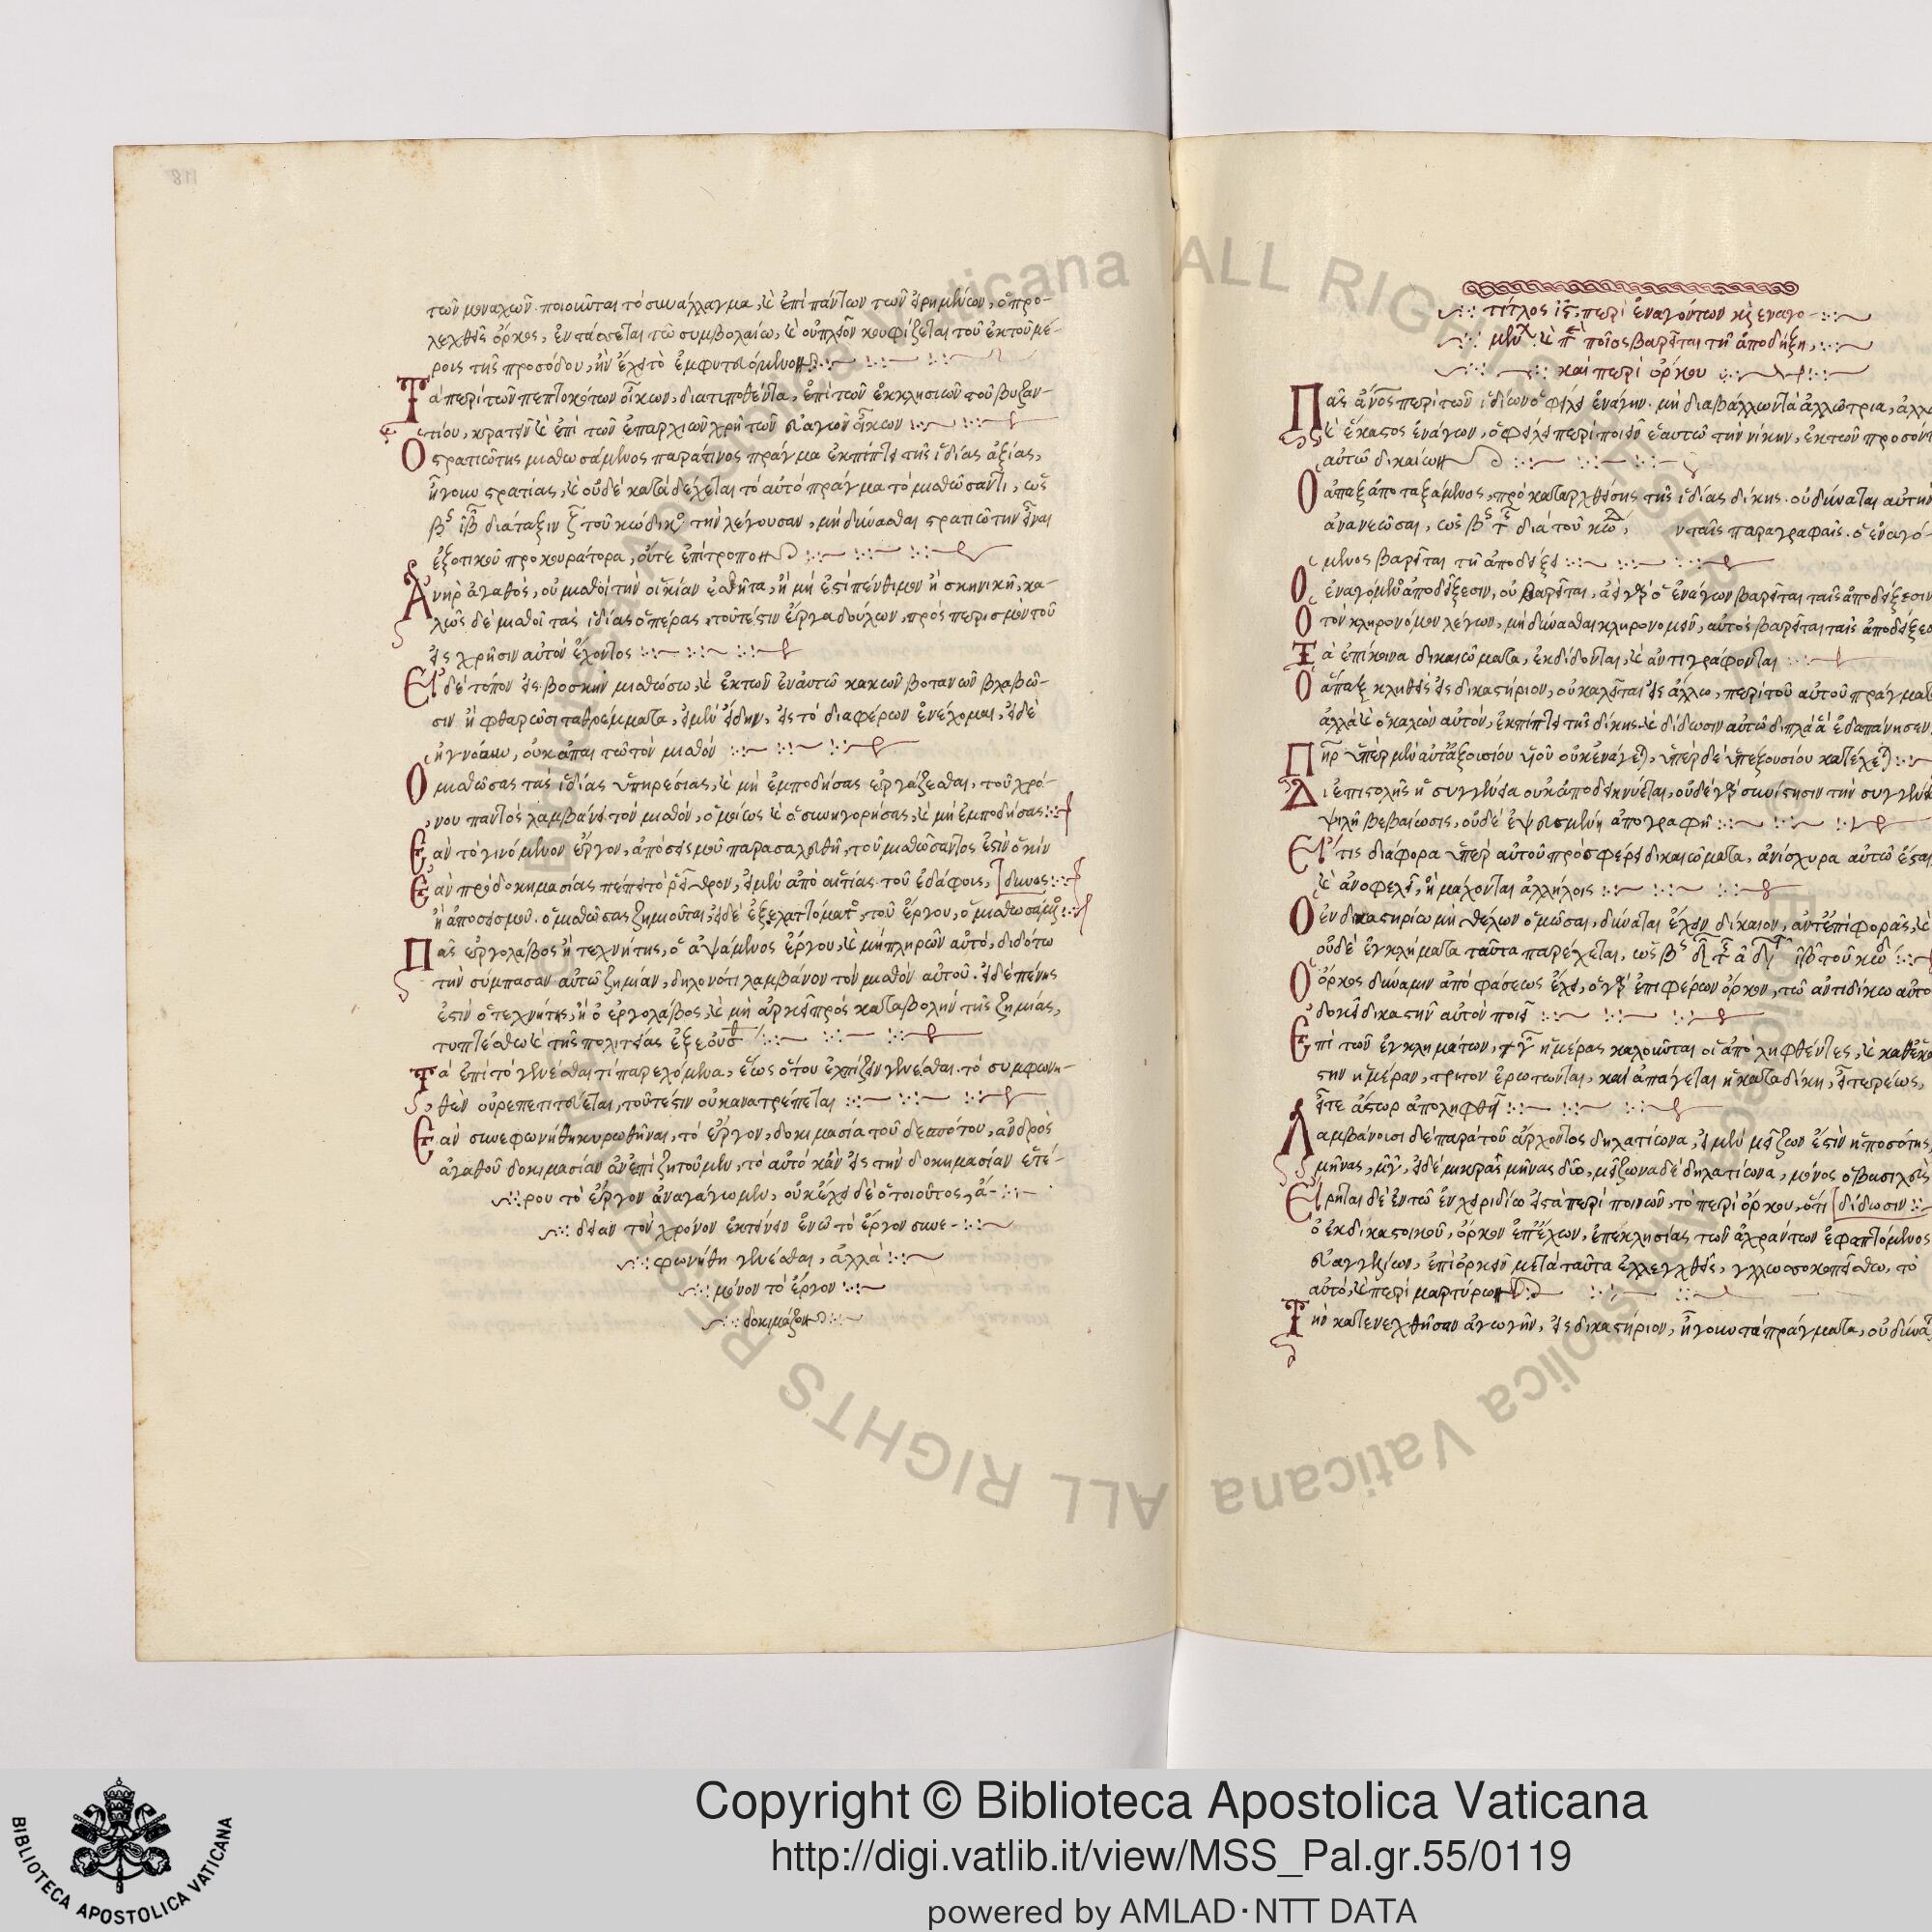 τῶν μοναχῶν ποιοῦνται τὸ συνάλλαγμα, καὶ ἐπὶ πάντων τῶν εἰρημένων, ὁ προ-
λεχθεὶς ὅρκος, ἐντάσσεται τῶ συμβολαίω, καὶ οὐ πλέον κουφίζεται τοῦ ἕκτου μέ-
ρους τῆς προσόδου, ἣν ἔχει τὸ ἐμφυτευόμενον
Τὰ περὶ τῶν πεπτοκότων οἴκων, διατιποθέντα, ἐπὶ τῶν ἐκκλησιῶν τοῦ βυζαν-
τίου, κρατεῖν καὶ ἐπὶ τῶν ἐπαρχιῶν χρὴ τῶν εὐαγῶν οἴκων
Ο στρατιώτης μισθωσάμενος παρά τινος πρᾶγμα ἐκπίπτει τῆς ἰδίας ἀξίας,
ἤγουν στρατίας, καὶ οὐδὲ καταδέχεται τὸ αὐτὸ πρᾶγμα τὸ μισθώσαντι, ὡς
διάταξιν τοῦ κώδικος τὴν λέγουσαν, μὴ δύνασθαι στρατιώτην εἶναι
ἐξοτικοῦ προκουράτορα, οὔτε ἐπίτροπον
Ἀνὴρ ἀγαθὸς, οὐ μισθοῖ τὴν οἰκίαν ἐσθῆτα, ἢ μὴ ἐπιπένθιμον ἢ σκηνικῆ, κα-
λῶς δὲ μισθοῖ τὰς ἰδίας ὀπέρας, τοῦτέστιν ἔργα δούλων, πρὸς περισμὸν τοῦ
εἰς χρῆσιν αὐτὸν ἔχοντος
Εἰ δὲ τόπον εἰς βοσκὴν μισθώσω, καὶ ἐκ τῶν ἐν αὐτῶ κακῶν βοτανῶν βλαβῶ-
σιν ἢ φθαρῶσι τὰ θρέμματα, εἰ μὲν εἴδην, εἰς τὸ διαφέρων ἐνέχομαι, εἰ δὲ
ἠγνόουν, οὐκ ἀπαιτῶ τὸν μισθόν
Ο μισθώσας τὰς ἰδίας ὑπηρεσίας, καὶ μὴ ἐμποδήσας ἐργάζεσθαι, τοῦ χρό-
νου παντὸς λαμβάνει τὸν μισθόν, ὁμοίως καὶ ὁ συνηγορήσας, καὶ μὴ ἐμποδήσας
Ἐὰν τὸ γινόμενον ἔργον, ἀπὸ σεισμοῦ παρασαλευθῆ, τοῦ μισθώσαντος ἐστὶν ὁ κίν
Ἐὰν πρὸ δοκημασίας πέπει τὸ ῥεῖθρον, εἰ μὲν ἀπὸ αἰτίας τοῦ ἐδάφους, δυνος
ἢ ἀπὸ σεισμοῦ, ὁ μισθώσας ζημιοῦται, εἰ δὲ ἐξ ἐλαττόματος τοῦ ἔργου, ὁ μισθωσάμενος
Πᾶς ἐργολάβος ἢ τεχνήτης, ὁ ἁψάμενος ἔργου, καὶ μὴ πληρῶν αὐτὸ, διδότω
τὴν σύμπασαν αὐτῶ ζημίαν, δηλονότι λαμβάνον τὸν μισθὸν αὐτοῦ. εἰ δὲ πένης
ἐστὶν ὁ τεχνήτης, ἢ ὁ ἐργολάβος, καὶ μὴ ἀρκεῖ πρὸς καταβολὴν τῆς ζημίας,
τυπτέσθω καὶ τῆς πολιτείας
Τὰ ἐπὶ τὸ γενέσθαι τί παρεχόμενα, ἕως ὅτου ἐλπίζειν γενέσθαι τὸ συμφωνη-
θὲν οὐ ρεπετιτεύεται, τοῦτέστιν οὐκ ἀνατρέπεται
Ἐὰν συνεφωνήθη κυρωθῆναι, τὸ ἔργον, δοκιμασία τοῦ δεσπότου, ἀνδρὸς
ἀγαθοῦ δοκιμασίαν ἀνεπιζητοῦμεν, τὸ αὐτὸ κἂν εἰς τὴν δοκημασίαν ἑτέ-
ρου τὸ ἔργον ἀναγάγωμεν, οὐκ ἔχει δὲ ὁ τοιοῦτος, ἄ-
δειαν τὸν χρόνον ἐκτείνειν ἐν ὧ τὸ ἔργον συνε-
φωνήθη γενέσθαι, ἀλλὰ
μόνον τὸ ἔργον
δοκιμάζον
τίτλος ις περὶ ἐναγόντων καὶ εναγο-
μένων, καὶ ποῖος βαρεῖται τῆ ἀποδήξη,
καὶ περὶ ὅρκου
Πᾶς ἄνος περὶ τῶν ἰδίων ὀφείλει ἐνάγην. μὴ διαβάλλωντα ἀλλώτρια,
καὶ ἕκαστος ἐνάγων, ὀφείλει περιποιεῖν ἑαυτῶ τὴν νίκην, ἐκ τῶν προσόντ
αὐτῶ δικαίων
Ο ἅπαξ ἀποταξάμενος, πρὸ καταρχθείσης τῆς ἰδίας δίκης. οὐ δύναται αὐτὴν
ἀνανεῶσαι, διὰ τοῦ νταῖς παραγραφαῖς. ὁ ἐναγό-
μενος βαρεῖται τῆ ἀποδείξει
Ο ἐναγόμενος ἀποδείξεσιν, οὐ βαρεῖται, ἀεὶ γὰρ ὁ ἐνάγων βαρεῖται ταῖς ἀποδείξεσιν
Ο τὸν κληρονόμον λέγων, μὴ δύνασθαι κληρονομεῖν, αὐτὸς βαρεῖται ταῖς ἀποδείξεσ
Τὰ ἐπίκοινα δικαιώματα, ἐκδίδονται, καὶ ἀντιγράφονται
Ο ἅπαξ κληθεὶς εἰς δικαστήριον, οὐ καλεῖται εἰς ἄλλω, περὶ τοῦ αὐτοῦ πράγματ
ἀλλὰ καὶ ὁ καλῶν αὐτὸν, ἐκπίπτει τῆς δίκης. καὶ δίδωσιν αὐτῶ διπλᾶ ἃ ἐδαπάνησεν
Πηρ ὑπὲρ μὲν αὐτεξουσίου υἱοῦ οὐκ ἐνάγεται, ὑπὲρ δὲ ὑπεξουσίου κατέχεται
Δι ἐπιστολῆς ἡ συγγένεια οὐκ ἀποδείκνύεται, οὐδὲ γὰρ συνίστησιν τὴν συγγένεια
ψιλὴ βεβαίωσις, οὐδὲ ἐψευσμένη ἀπογραφῆ
Εἴ τις διάφορα ὑπὲρ αὐτοῦ πρόσφέρει δικαιώματα, ἀνίσχυρα αὐτῶ ἔσται
καὶ ἀνοφελεῖ, ἢ μάχονται ἀλλήλοις
Ο ἐν δικαστηρίω μὴ θέλων ὀμῶσαι, δύναται ἔχειν δίκαιον, ἀντεπιφορᾶς, καὶ
οὐδὲ ἐγκλήματα ταῦτα παρέχεται, ὡς
Ο ὅρκος δύναμιν ἀποφάσεως ἔχει, ὁ γὰρ ἐπιφέρων ὅρκον, τῶ ἀντιδίκω αὐτο
δοκεῖ δικαστὴν αὐτὸν ποιεῖ
Ἐπὶ τῶν ἐγκλημάτων, ἡμέρας καλοῦνται οἱ ἀποληφθέντες, καὶ καθεκα
στην ἡμέραν, τρίτον ἐρωτωνται, καὶ ἀπάγεται ἡ καταδίκη, στερέως,
εἴτε ἄστωρ ἀποληφθῆ
Λαμβάνουσι δὲ παρὰ τοῦ ἄρχοντος δηλατίωνα, εἰ μὲν μείζων ἐστὶν ἡ ποσότης,
μῆνας, εἰ δὲ μικρᾶς μῆνας δύο, μείζωνα δὲ δηλατίωνα, μόνος ὁ βασιλεὺς
Εἴρηται δὲ ἐν τῶ ἐνχειριδίω εἰς τὰ περὶ ποινῶν, τὸ περὶ ὅρκου, ὅτι δίδωσιν
ὁ ἐκδικαστοικοῦ, ὅρκον ἐπέχων, ἐπεκλησίας τῶν ἀχράντων ἐφαπτόμενος
εὐαγγελίων, ἐπιορκεῖν μετὰ ταῦτα ἐλλεγχθεὶς, γλλωσσοκοπείσθω, τὸ
αὐτὸ, καὶ περὶ μαρτύρων
Τὴν κατενεχθῆσαν ἀγωγὴν, εἰς δικαστήριον, ἤγουν τὰ πράγματα, οὐ δύνα
118
Copyright © Biblioteca Apostolica Vaticana
http://digi.vatlib.it/view/MSS_Pal.gr.55/0119
powered by AMLAD·NTT DATA
BIBLIOTECA APOSTOLICA VATICANA